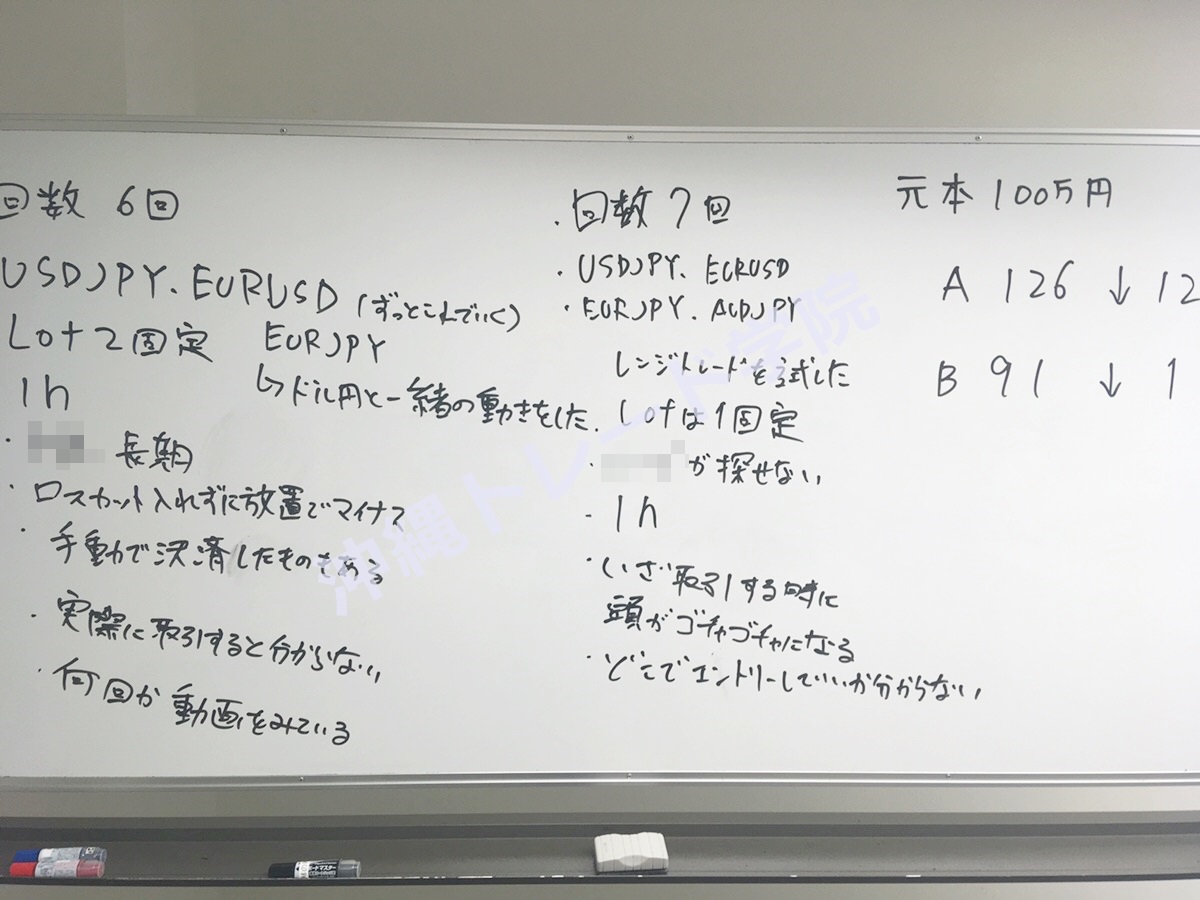 回数 6回
USDJPY、EURUSD (ずっとこれでいく)
Lot 2固定 EURJPY
↳ドル円と一緒の動きをした
1h
・ 長期
・ロスカット入れずに放置でマイナス
・手動で決済したものもある
・実際に取引すると分からない
・何回か動画をみている
・回数7回
・USDJPY、EURUSD
・EURJPY、AUDJPY
レンジトレードを試した
・Lotは1固定
・ が探せない
・1h
・いざ取引する時に
頭がゴチャゴチャになる
・どこでエントリーしていいか分からない
元本 100万円
A 126 ↓ 12
B 91 ↓ 1
沖縄トレード学院
ボードマスター